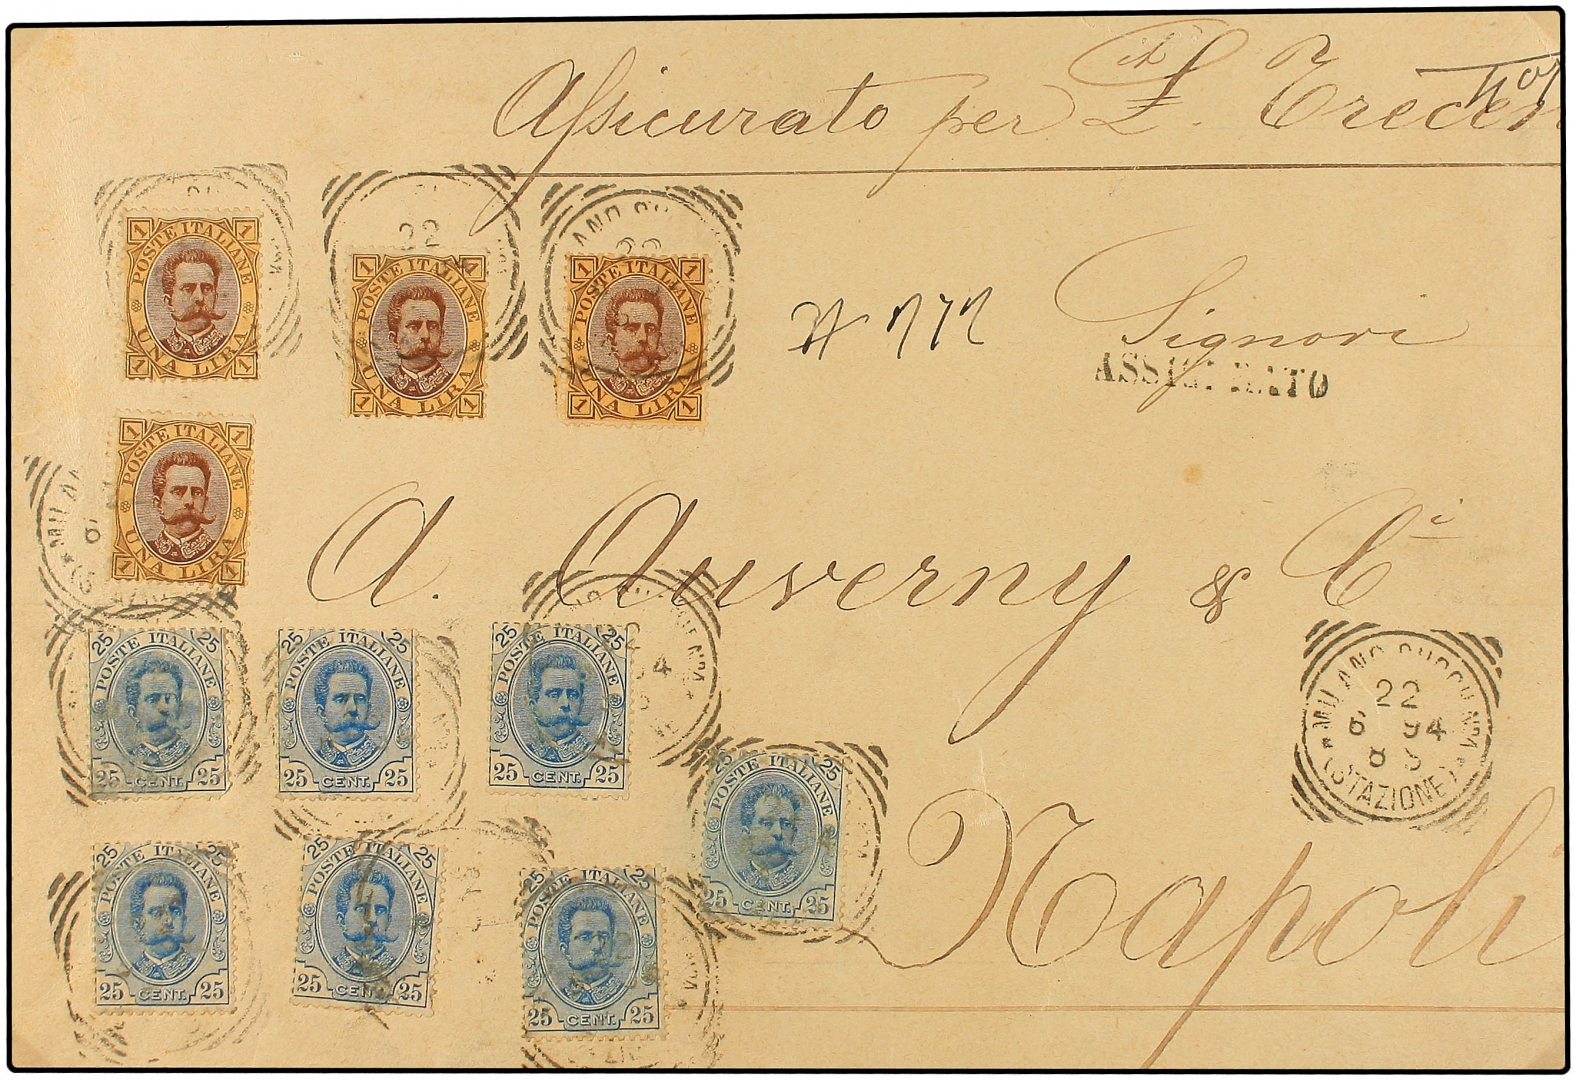 Assicurato per £.
Signori
ASSICURATO
A. Auverny & Ci
Napoli
1 1
POSTE ITALIANE
UNA LIRA
1 1
1 1
POSTE ITALIANE
UNA LIRA
1 1
1 1
POSTE ITALIANE
UNA LIRA
1 1
1 1
POSTE ITALIANE
UNA LIRA
1 1
25 25
POSTE ITALIANE
25 CENT. 25
25 25
POSTE ITALIANE
25 CENT. 25
25 25
POSTE ITALIANE
25 CENT. 25
25 25
POSTE ITALIANE
25 CENT. 25
25 25
POSTE ITALIANE
25 CENT. 25
25 25
POSTE ITALIANE
25 CENT. 25
25 25
POSTE ITALIANE
25 CENT. 25
MILANO SUCCU N°1
22
6 94
(STAZIONE)